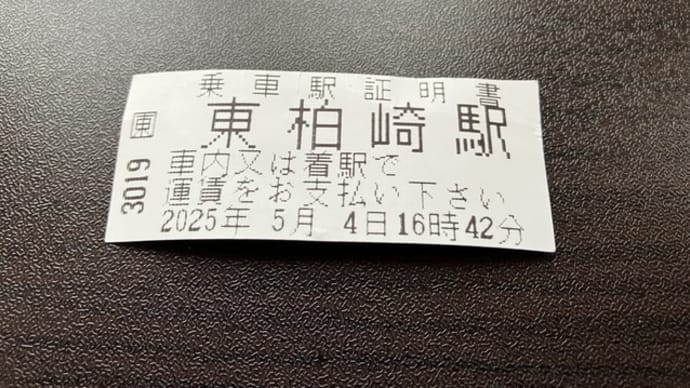 乗車駅証明書
東柏崎駅
車内又は着駅で
運賃をお支払い下さい
2025年 5月 4日16時42分
東
3019